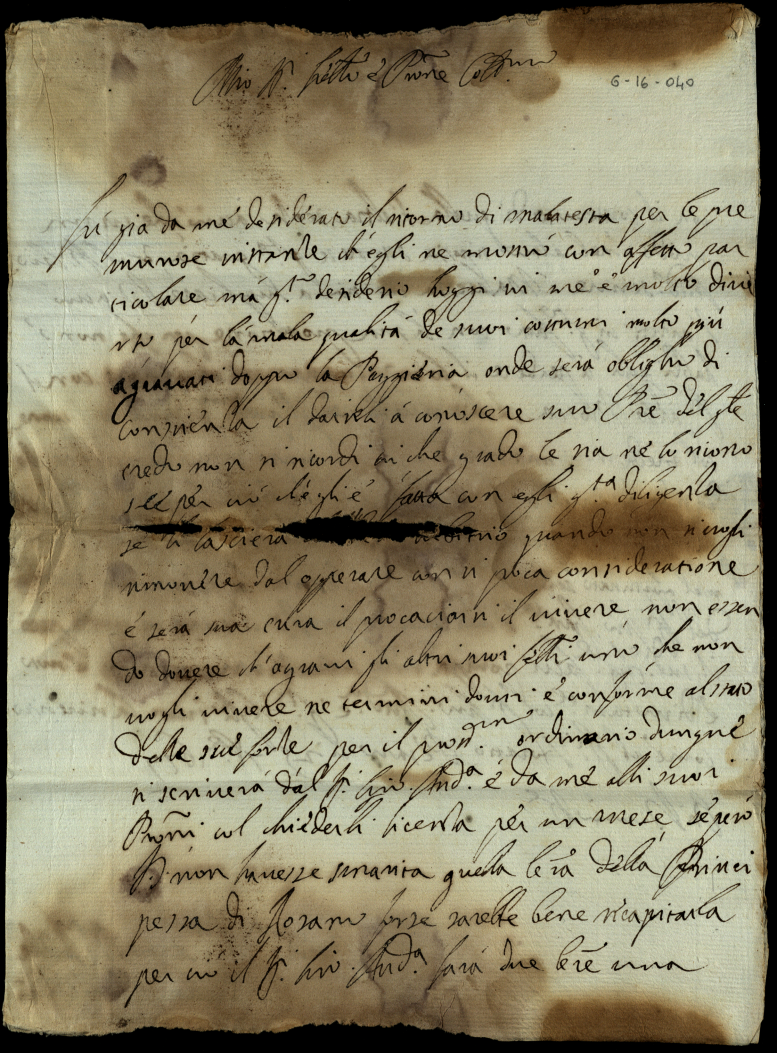 Mio Sr. fratto e Prone Coll.mo
6-16-040
Fù gia da mé desiderato il ritorno di malatesta per le pre
murose instanze ch'egli ne mostrò con affetto par
ticolare má q.to desiderio hoggi in me è molto dive
rso pér la mala qualitá de suoi costumi molto più
agravati doppo la Paggieria onde será obligho di
conscienza il darli á conoscere suo Pre del qle
credo non si ricordi in che grado le sia né lo riceva
se per ció ch'egli é con egli q.ta diligenza
se li lascierá arbitrio quando non si vogli
rimovére dal opperare con si poca consideratione
é será sua cura il procaciarsi il vivere non essen
do dovere ch'agravi gli altri suoi fratti uno che non
vogli vivere ne termini dovuti é conforme al stato
delle sue forze per il pross.mo ordinario dunque
si scriverá dal Sr. Gio. And.a é da mé alli suoi
Proni col chiederli licenza pér un mese, sépero
Sr. non havesse smarita quella lera della Princi
pessa di Rosano forse sarebbe bene ricapitarla
per ció il Sr. Gio. And.a fará due lere una